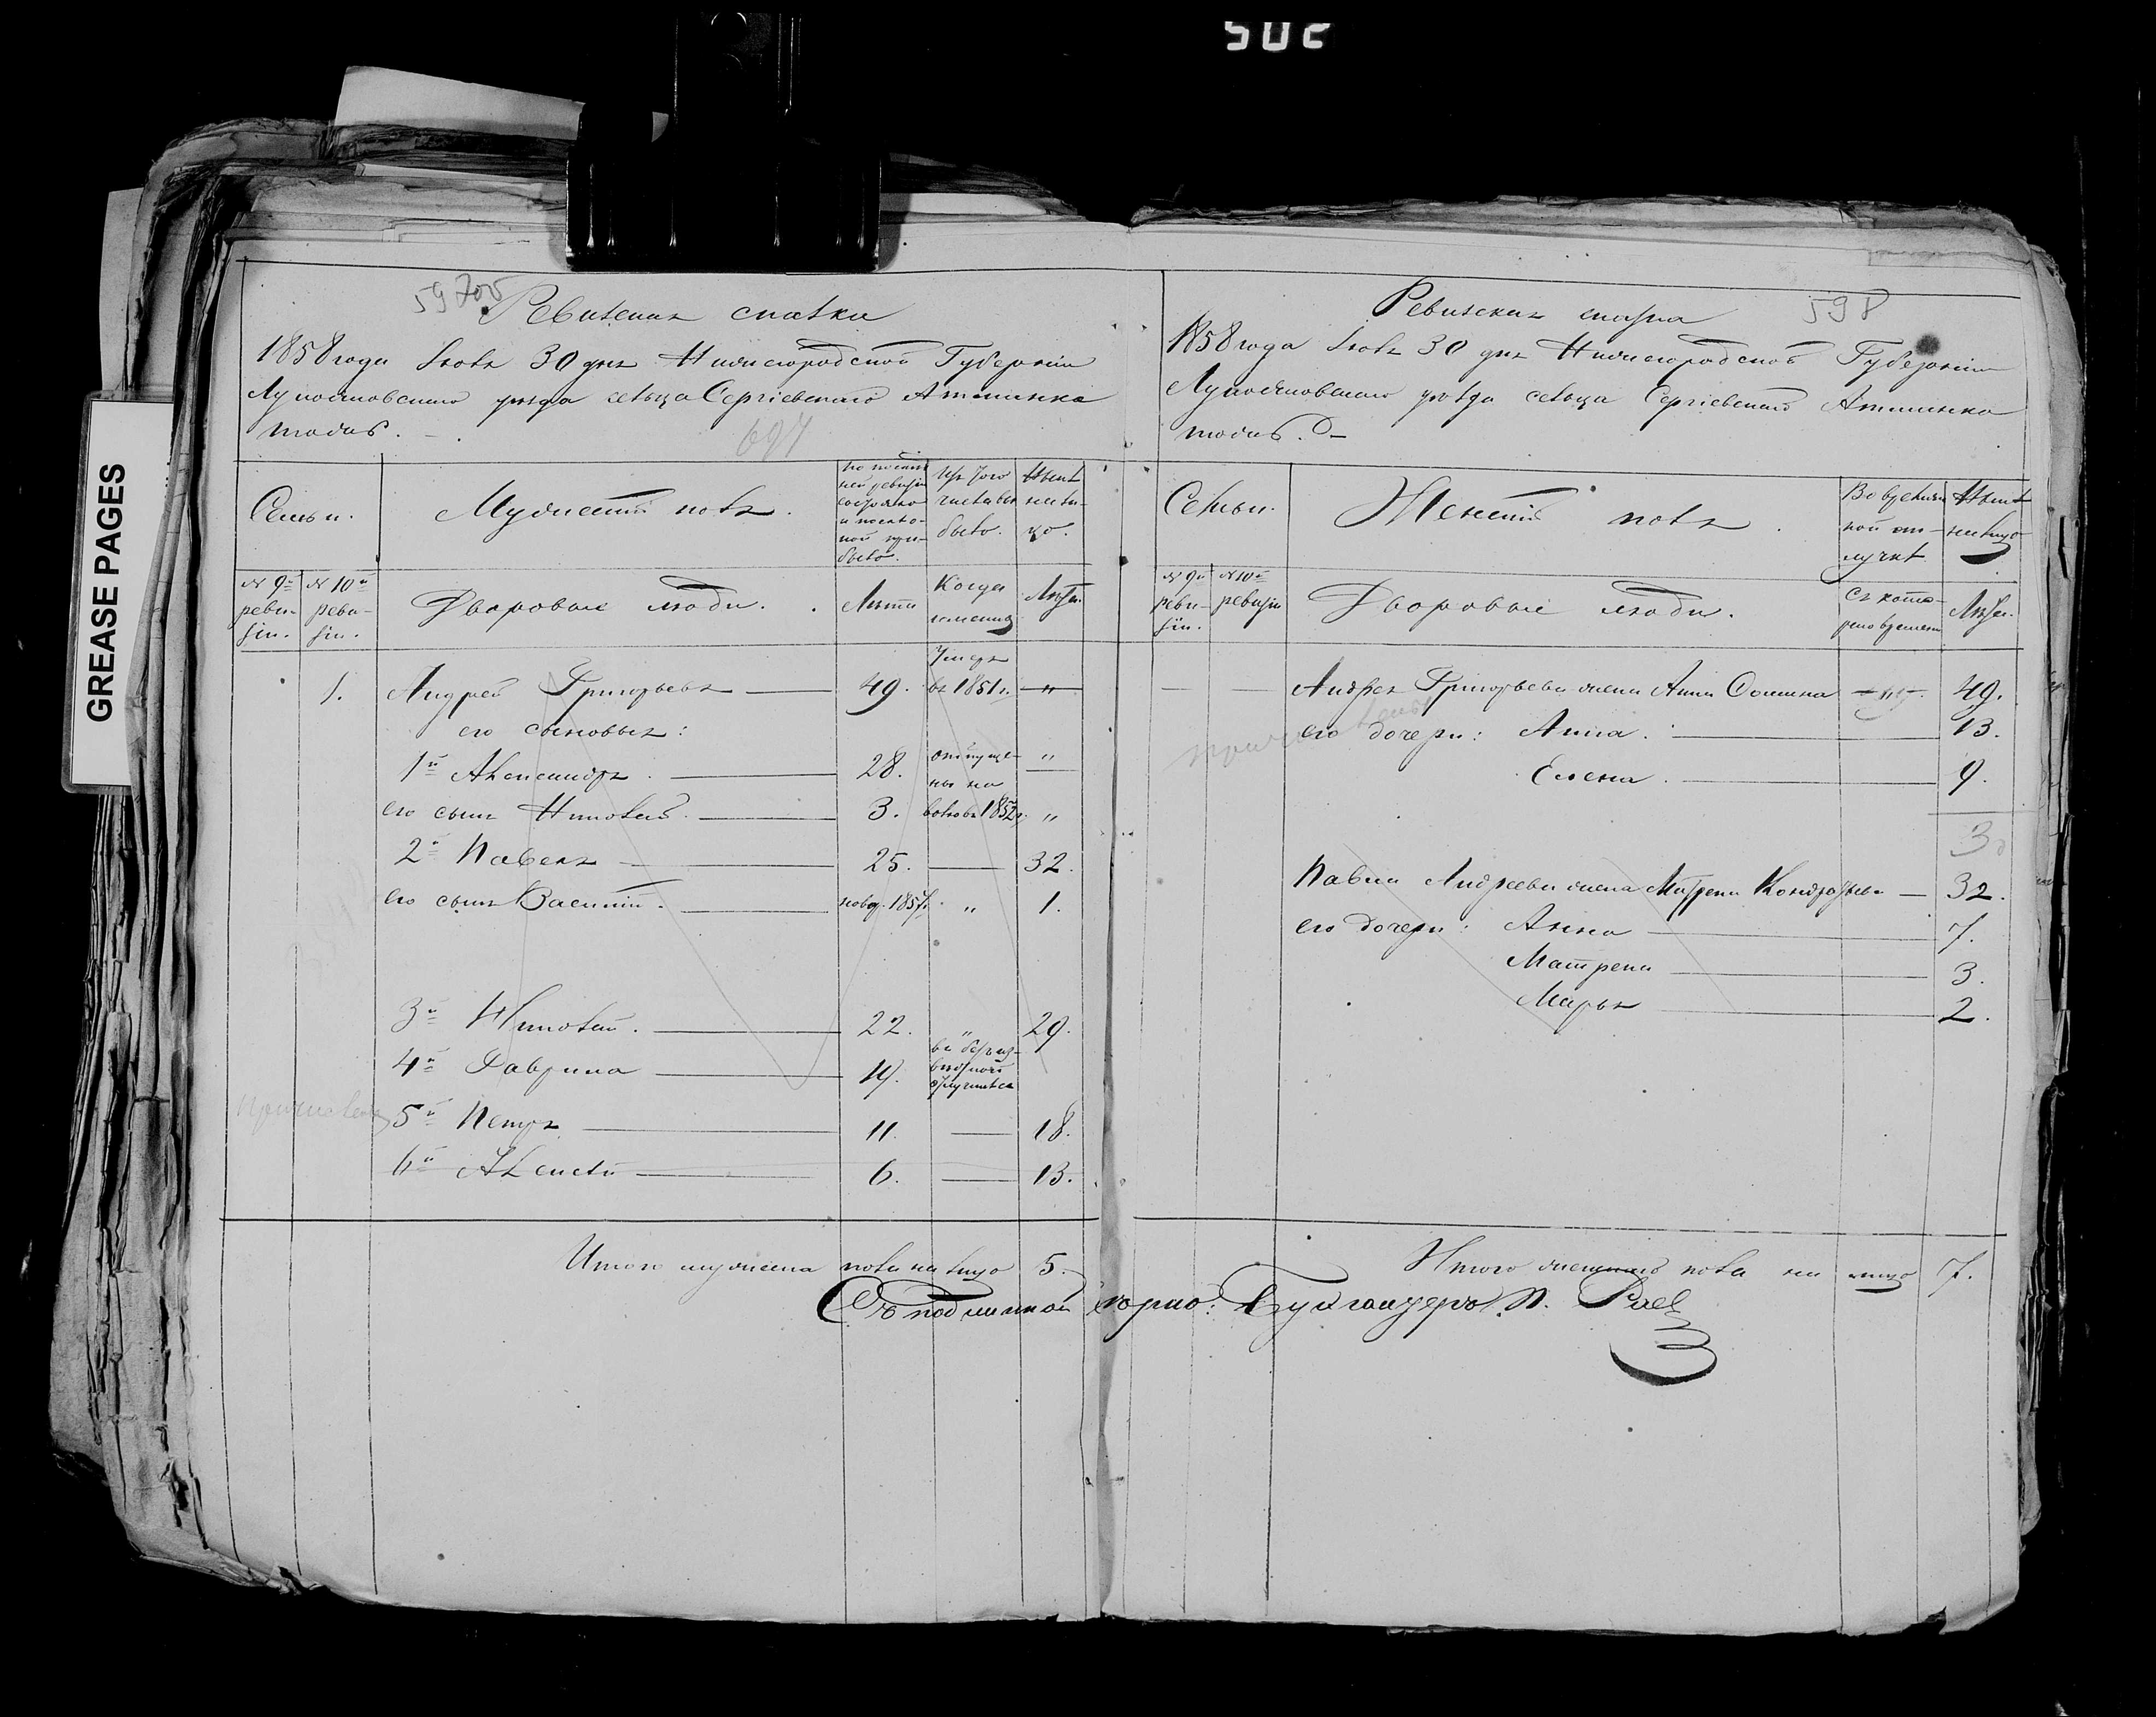 502
GREASE PAGES
Ревизская сказка
1858 года Іюля 30 дня Нижегородской Губерніи
Лукояновскаго уѣзда сельца Сергіевскаго Атминка
тожъ.
697
Семьи.
Мужескій полъ.
по послѣд
ней ревизіи
состояло
и послѣ о-
ной при-
было.
Изъ того
числа вы
было.
Нынѣ
на ли-
цо.
№ 9й
реви-
зіи.
№ 10й
реви-
зіи.
Дворовые люди.
Лѣта
Когда
именно
Лѣта.
1. Андрей Григорьевъ 49. Умеръ въ 1851 г. "
его сыновья:
1й Александръ. 28. отпуще- "
ны на
его сынъ Николай. 3. волю въ 1852 г. "
2й Павелъ 25. 32.
его сынъ Василій. новор. 1857 г. " 1.
3й Николай. 22. " 29.
4й Гаврила 14. въ безъиз-
вѣстной
отлучкѣ съ
Причислены
5й Петръ 11. 18.
6й Алексѣй 6. 13.
Итого мужеска пола на лицо 5.
598
Ревизская сказка
1858 года Іюля 30 дня Нижегородской Губерніи
Лукояновскаго уѣзда сельца Сергіевскаго Атминка
тожъ.
Семьи.
Женскій полъ.
Во времен
ной от-
лучкѣ
Нынѣ
на лицо
№ 9й
реви-
зіи.
№ 10й
ревизіи
Дворовые люди.
Съ кото-
раго времени
Лѣта.
Андрея Григорьева жена Анна Фомина " 49.
его дочери: Анна. 13.
Елена. 9.
3
Павла Андреева жена Матрена Кондратьева 32.
его дочери: Анна 7.
Матрена 3.
Марья 2.
Итого женскаго пола на лицо 7.
Съ подлинной вѣрно: